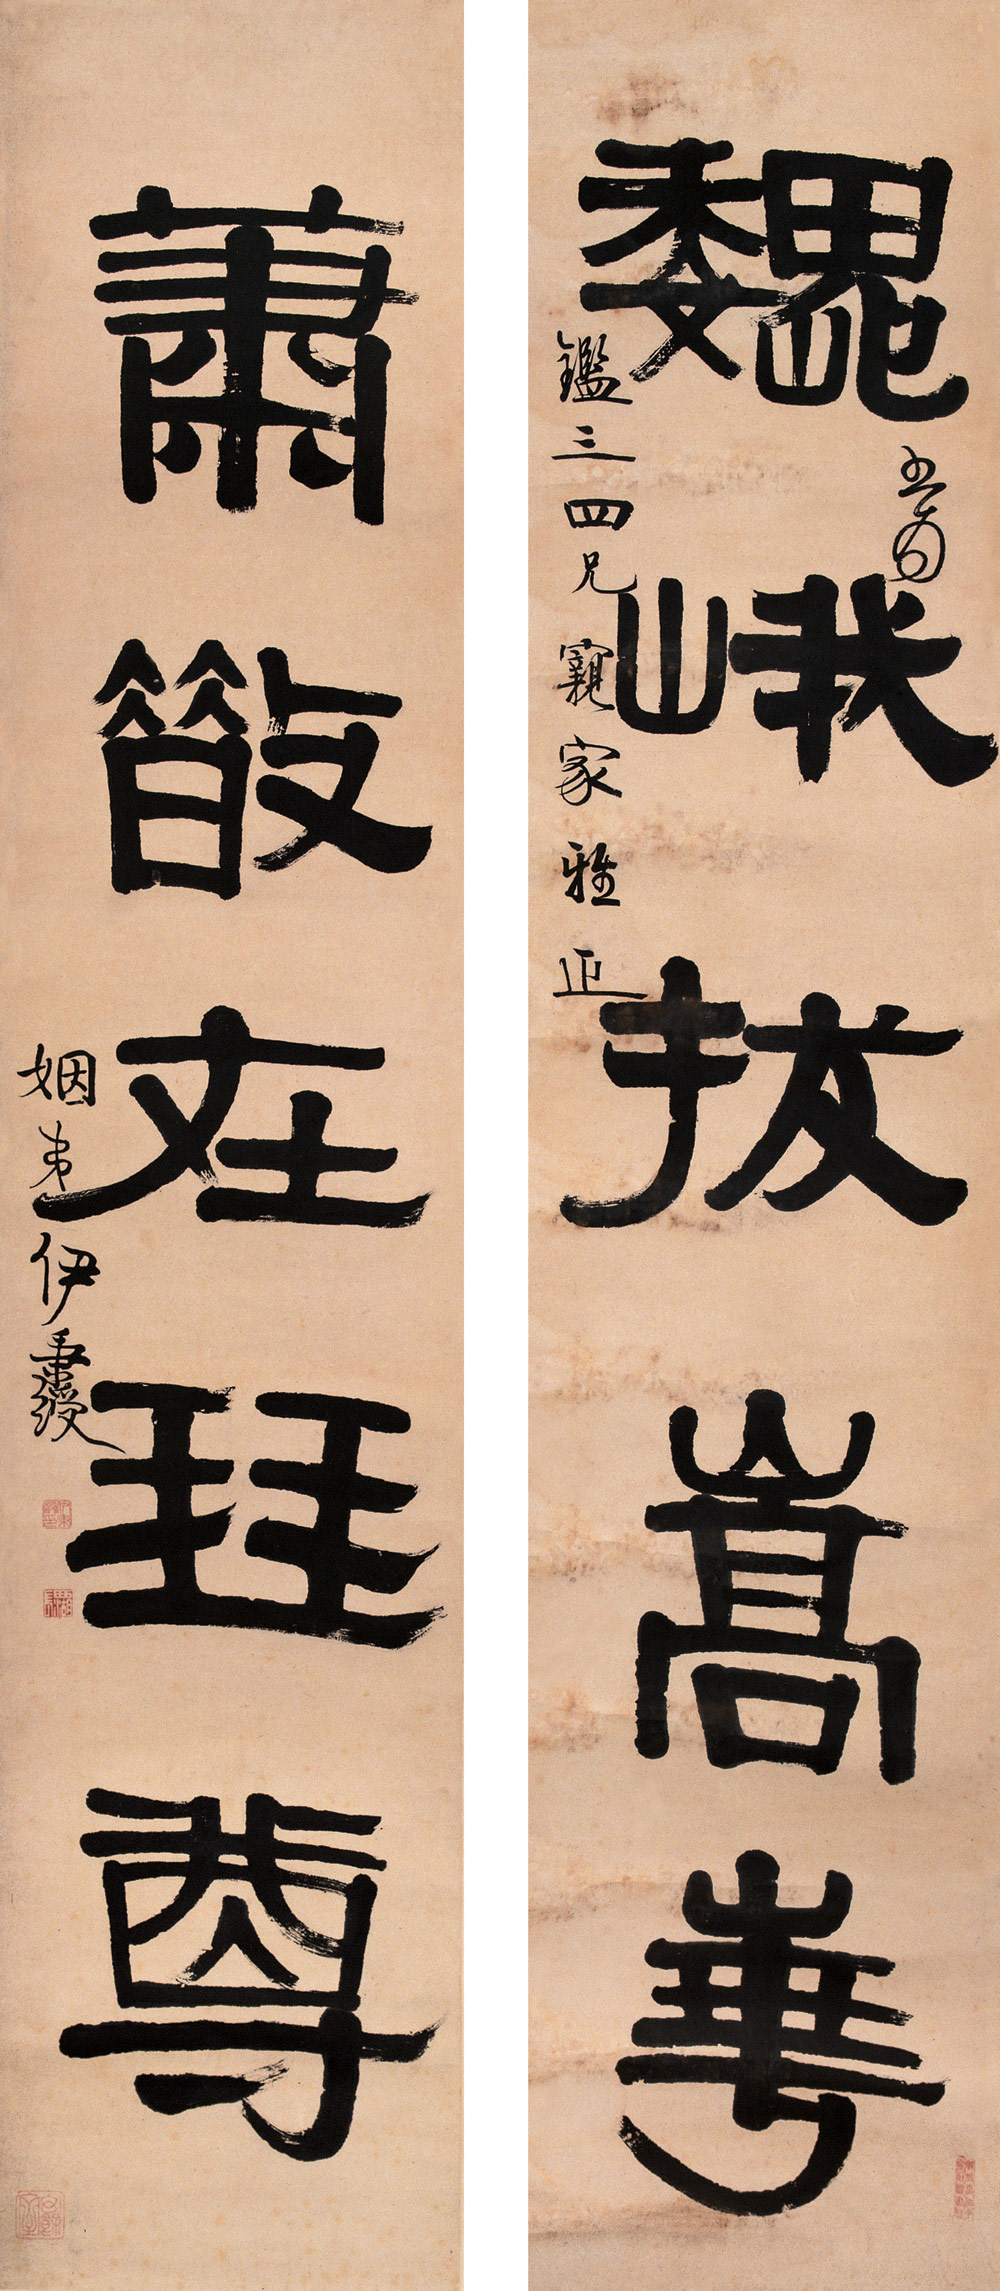 巍峨拔嵩華
書為
鑑三四兄寴家雅正
蕭散在琴尊
姻弟伊秉綬